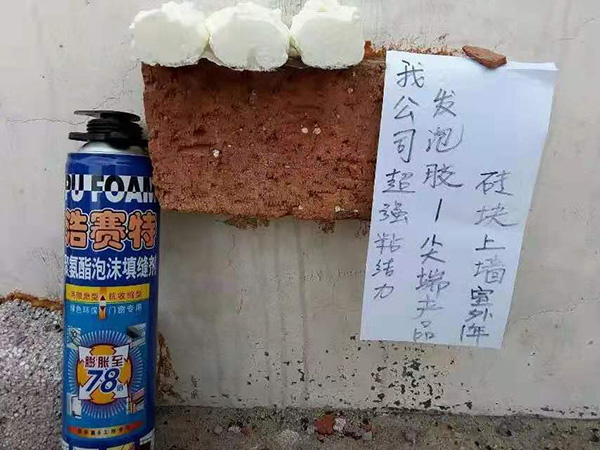 PU FOAM
浩赛特
聚氨酯泡沫填缝剂
抗收缩型
绿色环保 门窗专用
膨胀至
78
我公司超强粘结力
发泡胶—尖端产品
硅块上墙室外1年